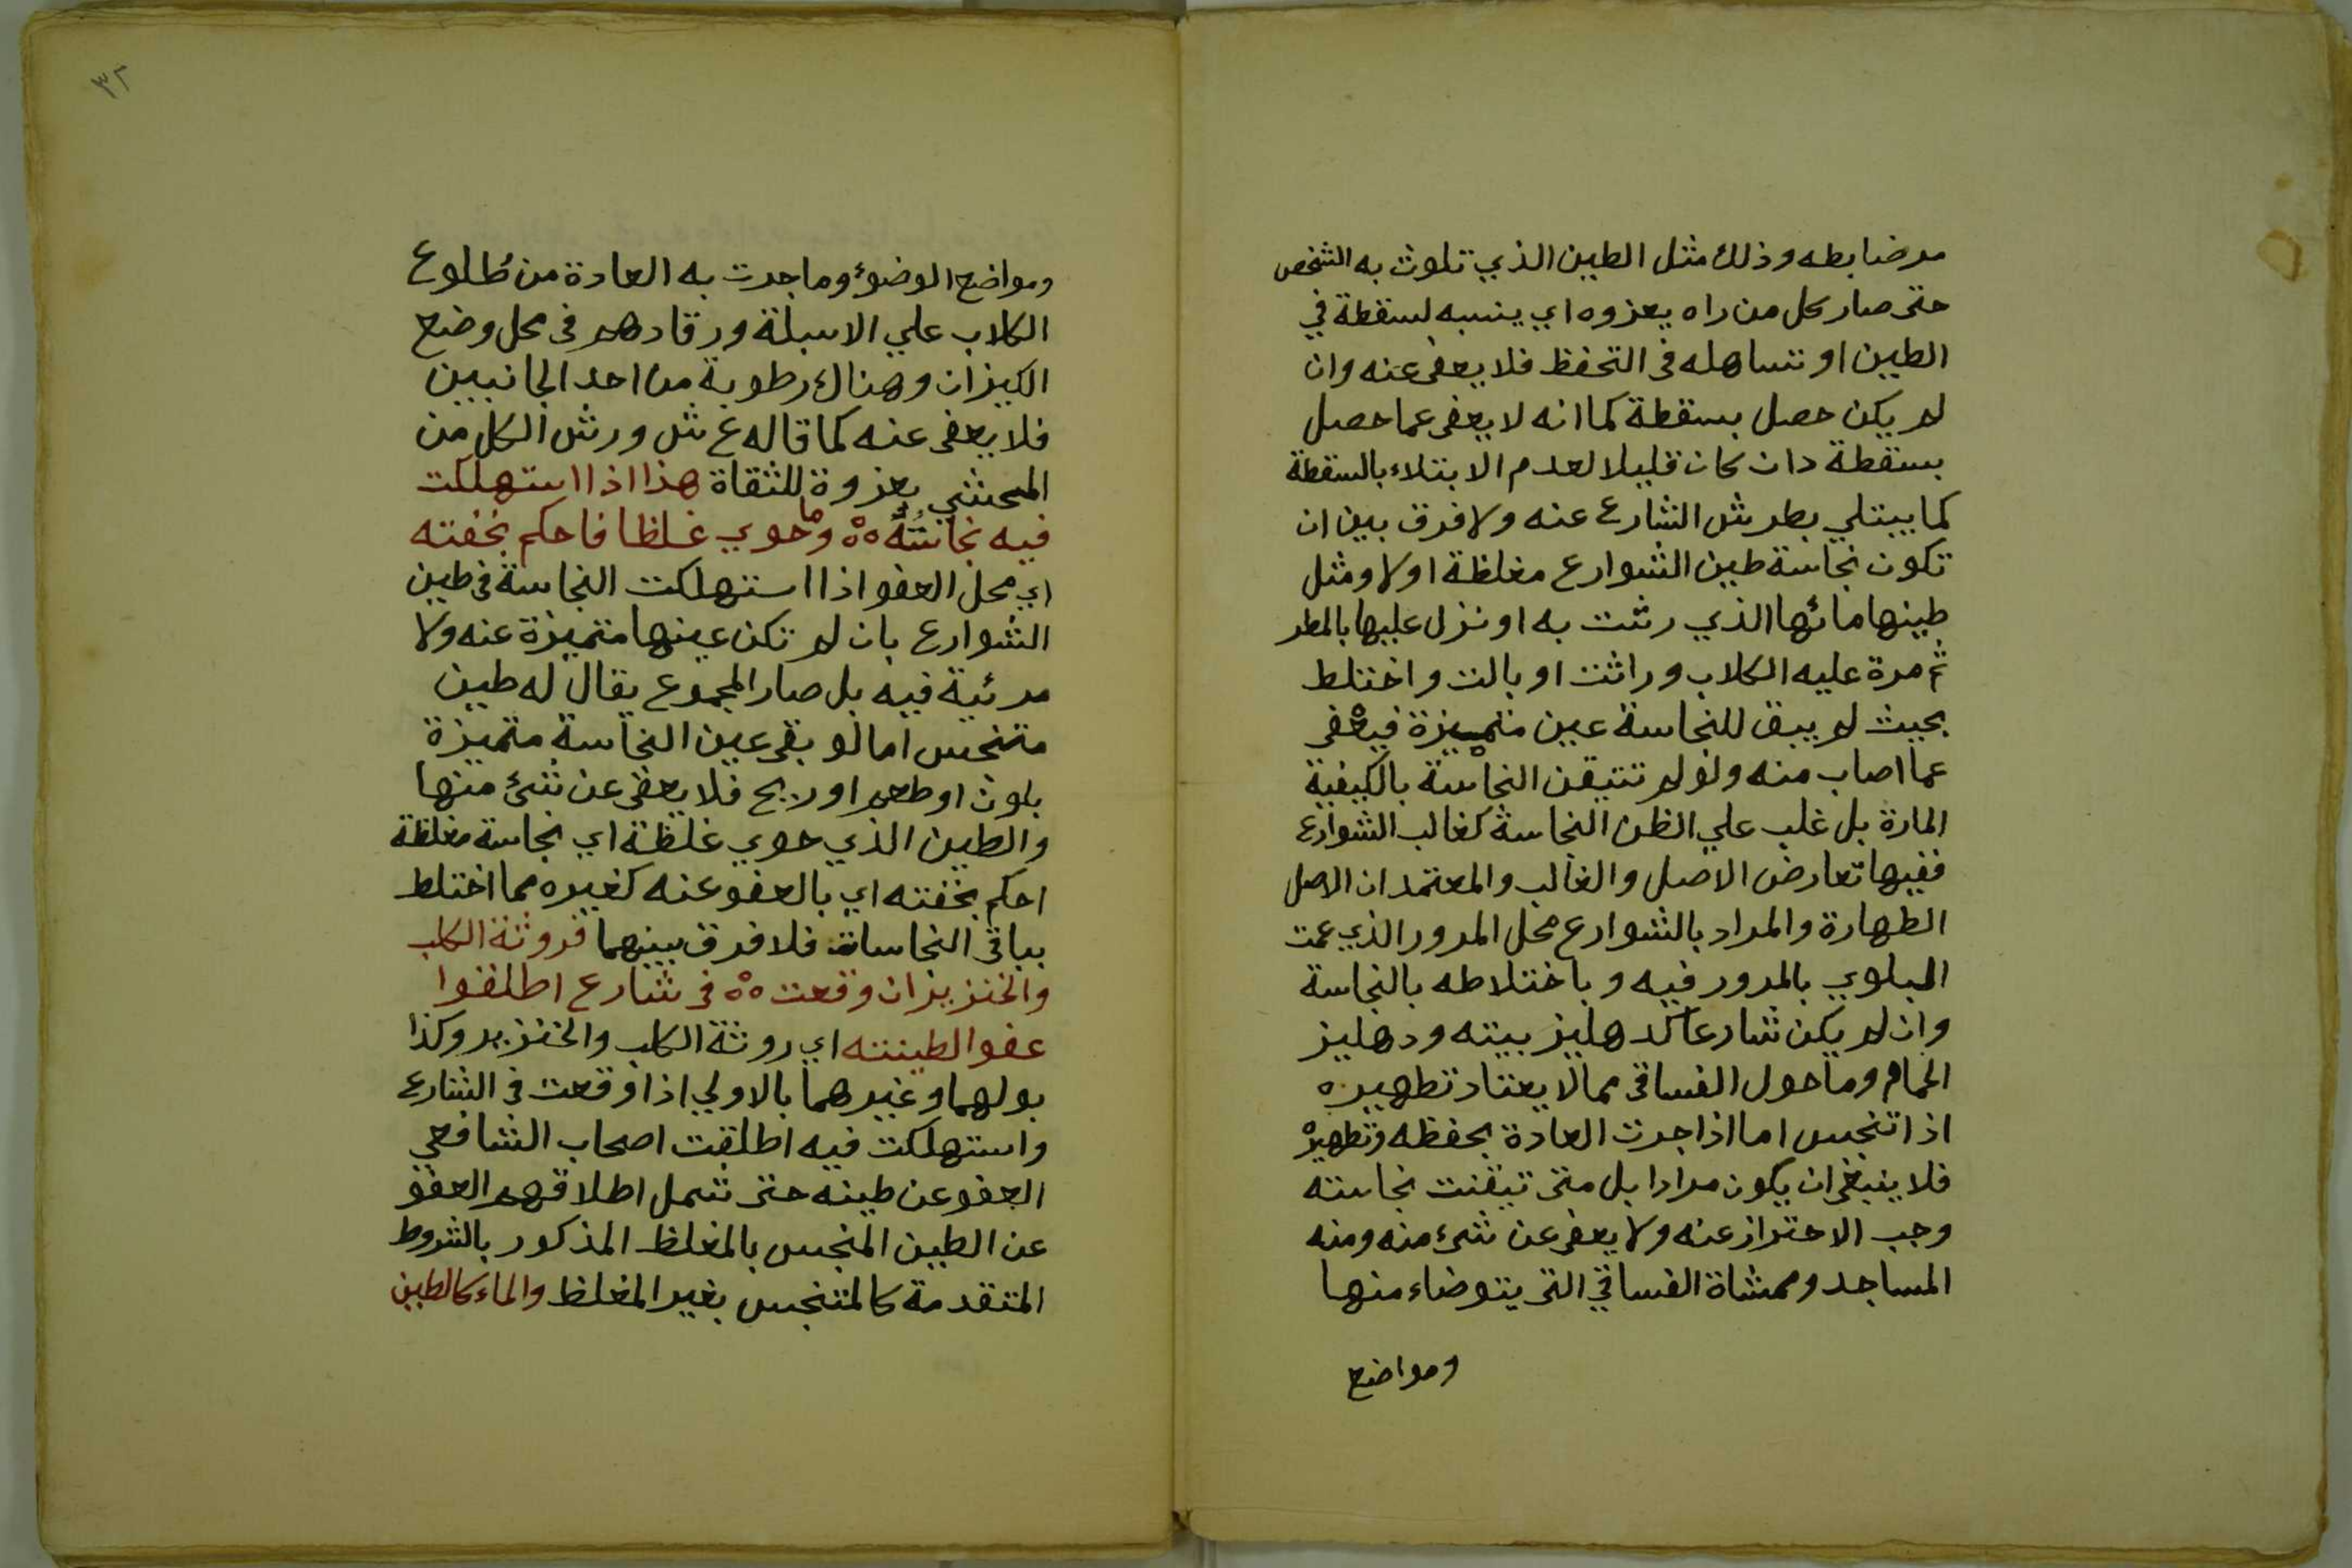 مرضابطه وذلك مثل الطين الذي تلوث به الشخص
حتى صار كل من راه يعزوه اي ينسبه لسقطة في
الطين او تساهله فى التحفظ فلا يعفى عنه وان
لم يكن حصل بسقطة كما انه لا يعفى عما حصل
بسقطة وان كان قليلا لعدم الابتلاء بالسقطة
كما يبتلي بطرش الشارع عنه ولا فرق بين ان
تكون نجاسة طين الشوارع مغلظة اولا ومثل
طينها مائها الذي رشت به او نزل عليها بالمطر
ثم مرة عليه الكلاب وراثت او بالت واختلط
بحيث لم يبق للنجاسة عين متميزة فيعفى
عما اصاب منه ولو لم تتيقن النجاسة بالكيفية
المارة بل غلب علي الظن النجاسة كغالب الشوارع
ففيها تعارض الاصل والغالب والمعتمد ان الاصل
الطهارة والمراد بالشوارع محل المرور الذي عمت
البلوي بالمرور فيه وباختلاطه بالنجاسة
وان لم يكن شارعا كدهليز بيته ودهليز
الحمام وما حول الفساقى مما لا يعتاد تطهيره
اذا تنجس اما اذا جرت العادة بحفظه وتطهيره
فلا ينبغى ان يكون مرادا بل متى تيقنت نجاسته
وجب الاحتراز عنه ولا يعفى عن شئ منه ومنه
المساجد وممشاة الفساقي التى يتوضاء منها
ومواضع
٣٢
ومواضع الوضوء وما جرت به العادة من طُلوع
الكلاب علي الاسبلة ورقادهم فى محل وضع
الكيزان وهناك رطوبة من احد الجانبين
فلا يعفى عنه كما قاله ع ش ورش الكل من
المحشي بعزوة للثقاة هذا اذا استهلكت
فيه نجاستُهُ ٥٥ وما حوي غلظا فاحكم بخفته
اي محل العفو اذا استهلكت النجاسة فى طين
الشوارع بان لم تكن عينها متميزة عنه ولا
مرئية فيه بل صار المجموع يقال له طين
متنجس اما لو بقى عين النجاسة متميزة
بلون او طعم او ريح فلا يعفى عن شئ منها
والطين الذي حوي غلظة اي نجاسة مغلظة
احكم بخفته اي بالعفو عنه كغيره مما اختلط
بباقى النجاسات فلا فرق بينهما فروثة الكلب
والخنزير ان وقعت ٥٥ فى شارع اطلقوا
عفوا لطينته اي روثة الكلب والخنزير وكذا
بولهما وغيرهما بالاولي اذا وقعت في الشارع
واستهلكت فيه اطلقت اصحاب الشافعي
العفو عن طينه حتى تشمل اطلاقهم العفو
عن الطين المنجس بالمغلظ المذكور بالشروط
المتقدمة كالمتنجس بغير المغلظ والماء كالطين